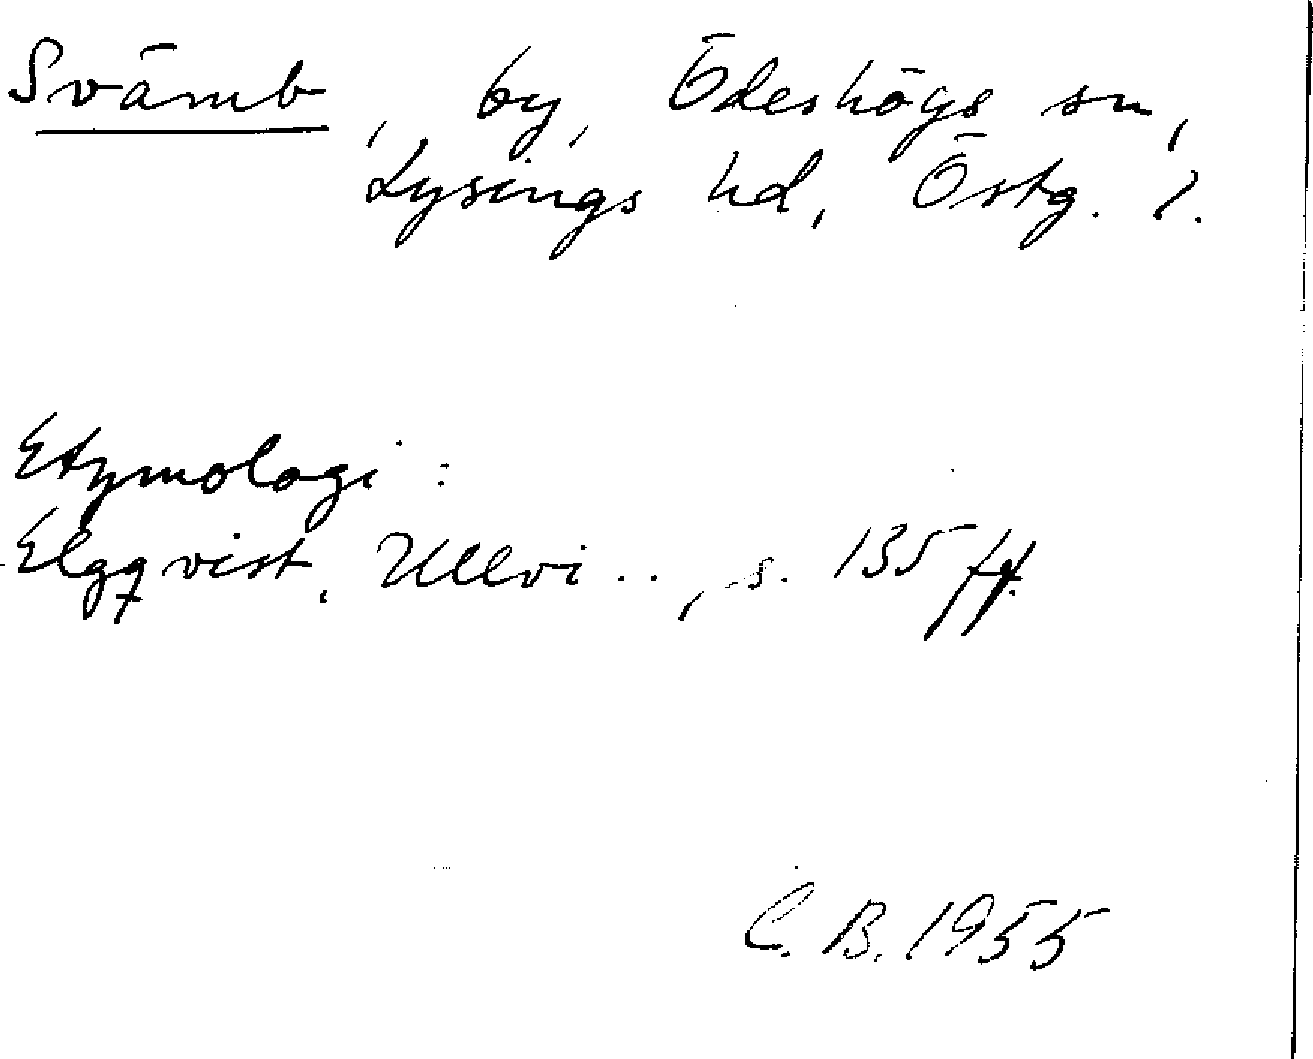 Svämb, by, Ödeshögs sn,
Lysings hd, Östg. l.
Etymologi:
Elgqvist, Ullvi.., s. 135 ff.
C. B. 1955